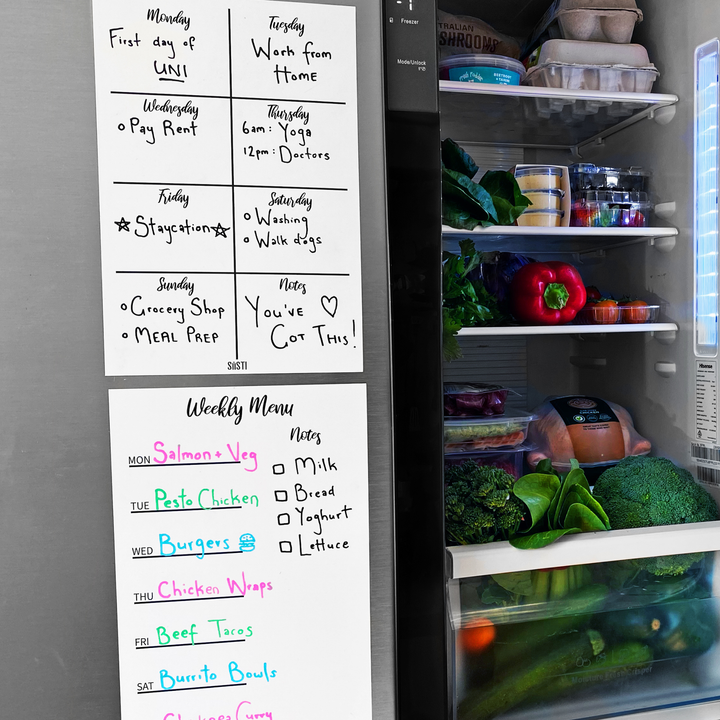 Monday
First day of
UNI
Tuesday
Work from
Home
Wednesday
Pay Rent
Thursday
6am: Yoga
12pm: Doctors
Friday
Staycation
Saturday
Washing
Walk dogs
Sunday
Grocery Shop
MEAL PREP
Notes
You've
Got This!
SISTI
Weekly Menu
Notes
MON Salmon + Veg
TUE Pesto Chicken
WED Burgers
THU Chicken Wraps
FRI Beef Tacos
SAT Burrito Bowls
Chickpea Curry
Milk
Bread
Yoghurt
Lettuce
Freezer
Mode/Unlock
TRALIAN
SHROOMS
Hisense
CHICKEN